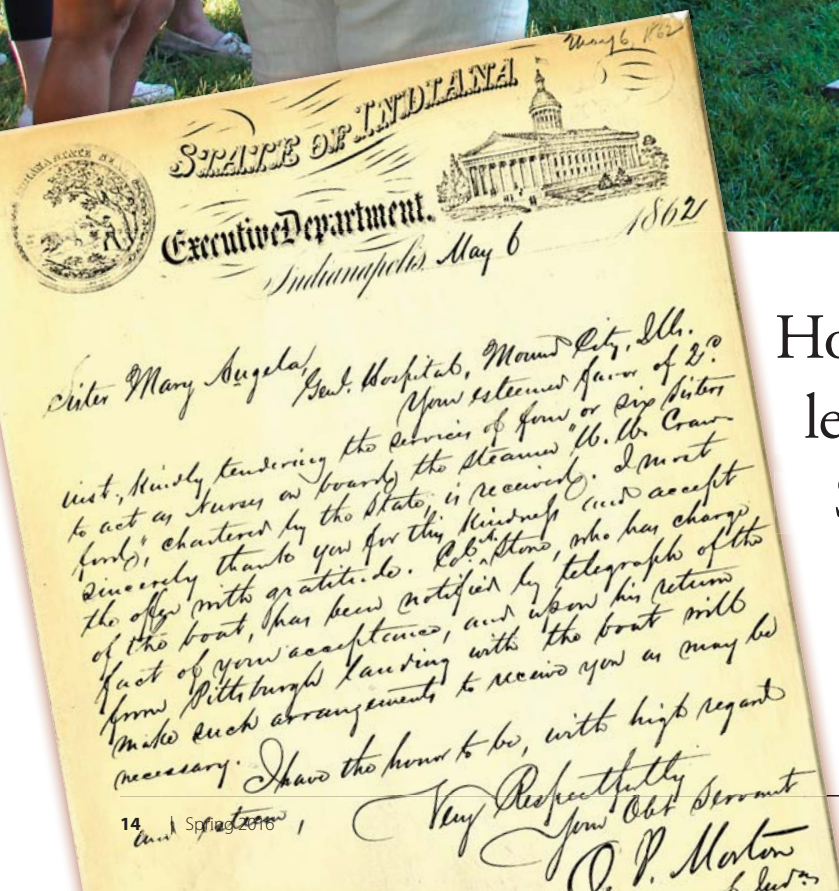 May 6, 1862
INDIANA STATE SEAL
STATE OF INDIANA
Executive Department.
Indianapolis, May 6 1862
Sister Mary Angela,
Genl. Hospital, Mound City, Ills.
Your esteemed favor of 2d.
inst., kindly tendering the services of four or six Sisters
to act as Nurses on board, the steamer "W. W. Craw-
ford", chartered by the State, is received. I most
sincerely thank you for this kindness and accept
the offer with gratitude. Col. Stone, who has charge
of the boat, has been notified by telegraph of the
fact of your acceptance, and upon his return
from Pittsburgh landing with the boat will
make such arrangements to receive you as may be
necessary.
I have the honor to be, with high regard
and esteem,
Very Respectfully
Your Obt Servant
O. P. Morton
Ho
le
14 | Spring 2016